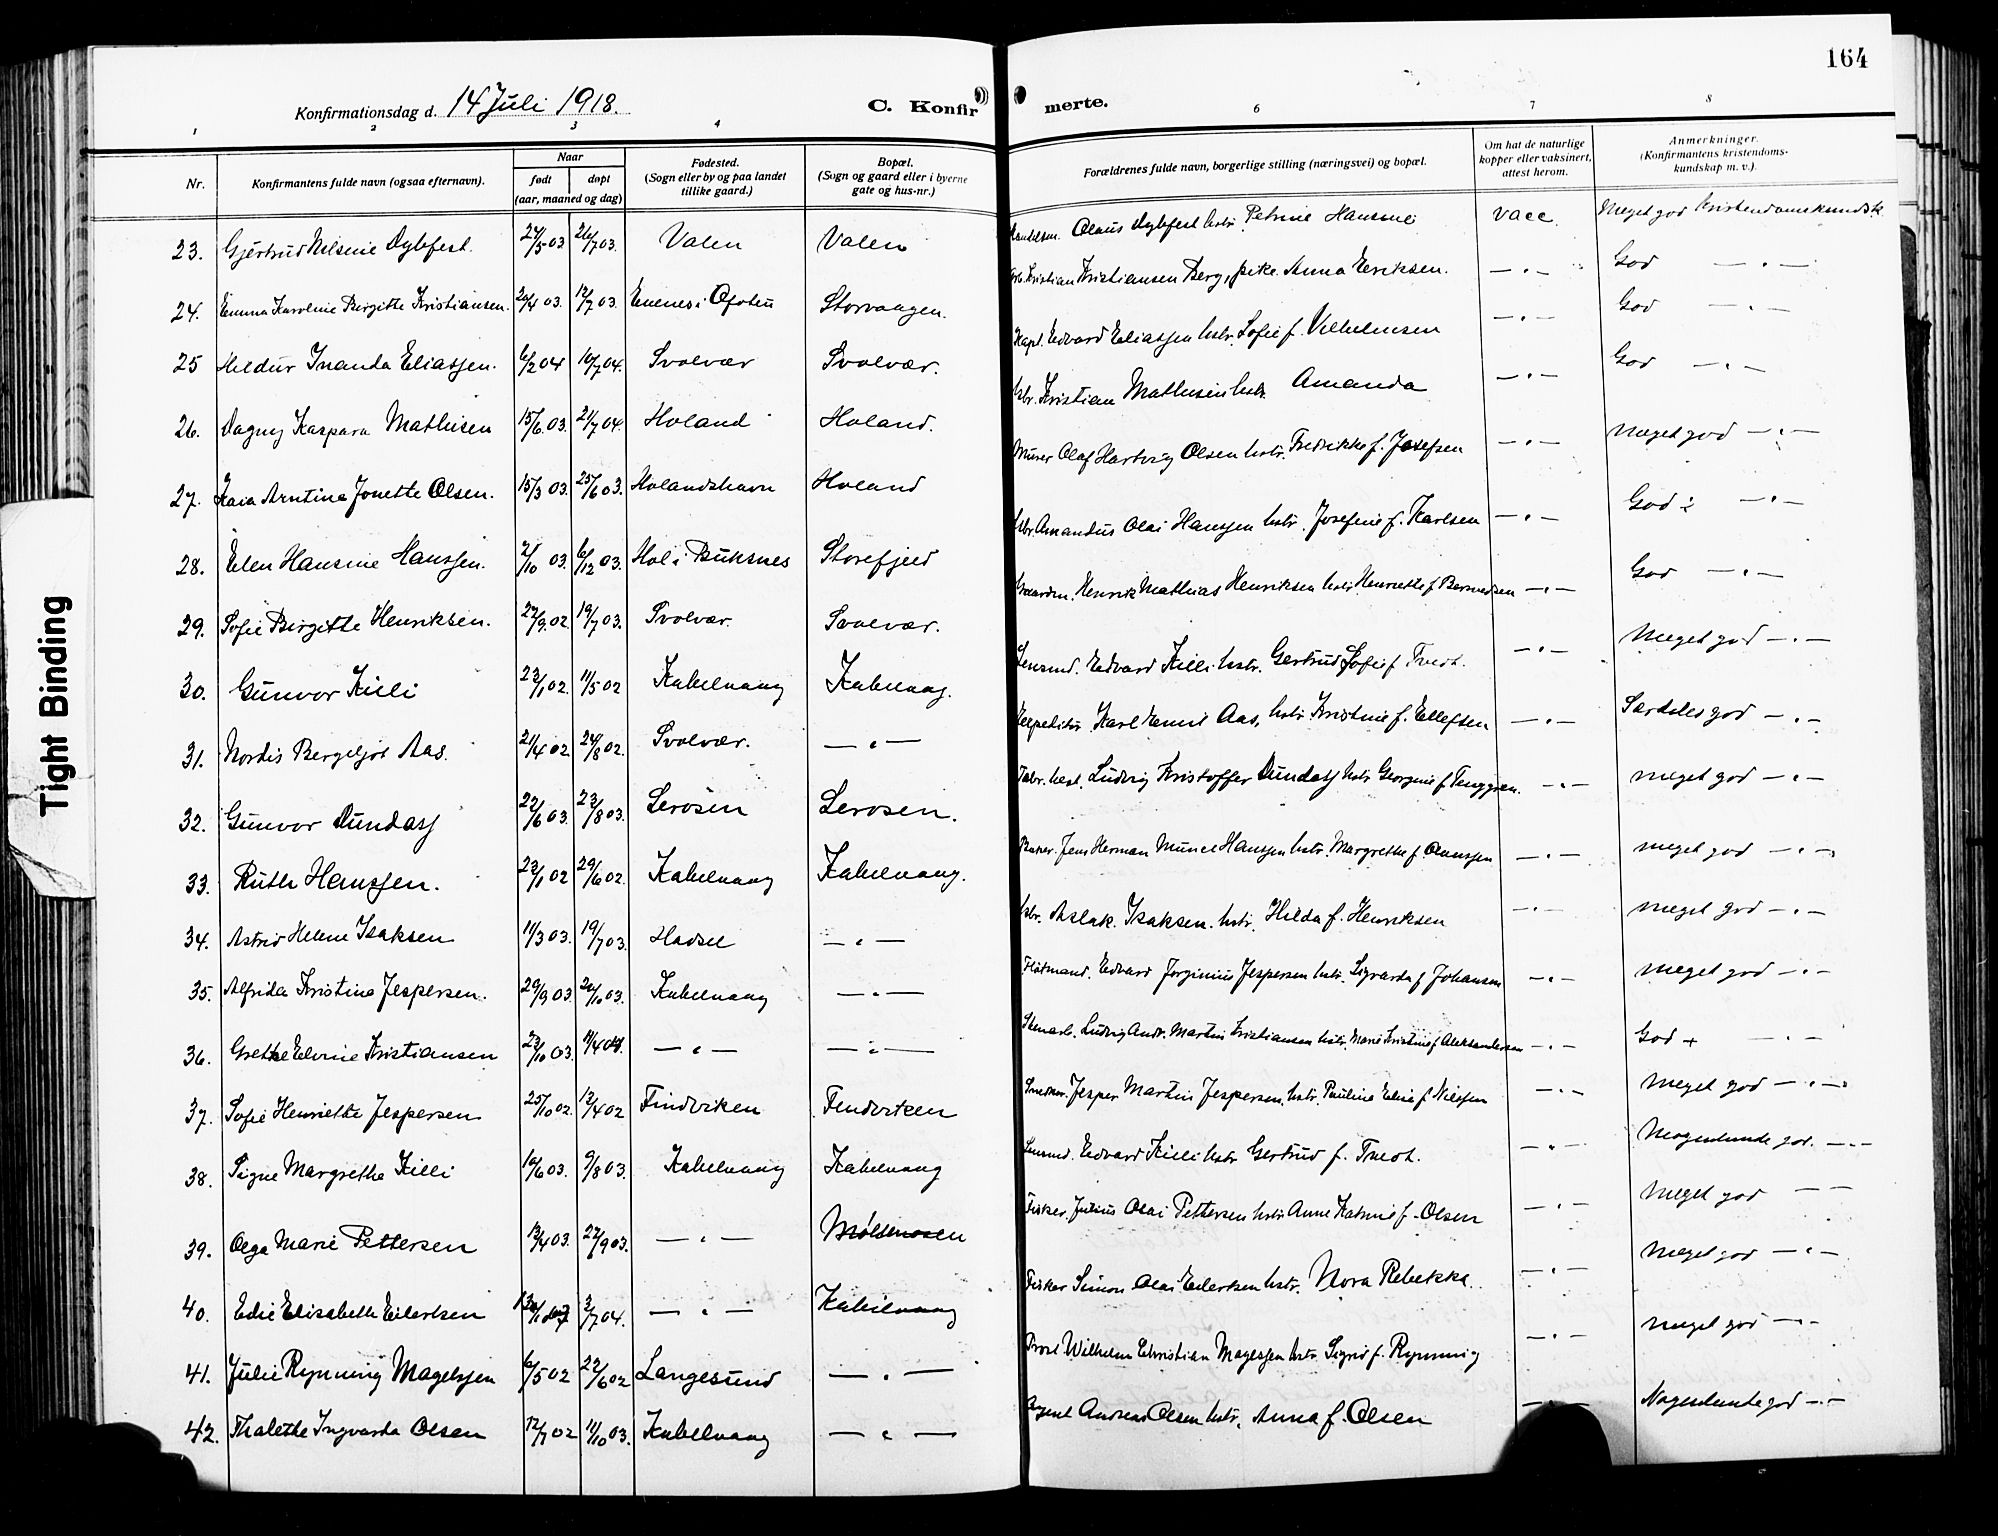 164
Konfirmationsdag d. 14 Juli 1918. C. Konfirmerte.
1 2 3 4 6 7 8
Nr. Konfirmantens fulde navn (ogsaa efternavn). Naar født døpt (aar, maaned og dag) Fødested. (Sogn eller by og paa landet tillike gaard.) Bopæl. (Sogn og gaard eller i byerne gate og hus-nr.) Forældrenes fulde navn, borgerlige stilling (næringsvei) og bopæl. Om hat de naturlige kopper eller vaksinert, attest herom. Anmerkninger. (Konfirmantens kristendomskundskap m. v.).
23. Gjertrud Nilsine Dybfest. 24/5 03 26/7 03. Valen Valen Olaus Dybfest hstr. Petrine Hansine vacc. Meget god Kristendomskundsk.
24. Emma Karoline Birgitte Kristiansen. 20/4 03. 12/7 03. Evenes i Ofoten Storvaagen. Kristian Kristiansen Berg, pike Anna Eriksen. — " — God — " —
25 Hildur Inanda Eliassen. 6/2 04 10/7 04. Svolvær Svolvær. Kapt. Edvard Eliassen hstr. Sofie f. Vilhelmsen — " — God — " —
26. Dagny Kaspara Mathisen 15/6. 03. 21/7 04. Holand Holand. Kristian Mathisen hstr. Amanda — " — God — " —
27. Kaia Arntine Jonette Olsen. 15/3 03. 25/6 03. Holandshavn Holand Murer Olaf Hartvig Olsen hstr. Fredrikke f. Josefsen — " — Meget god — " —
28. Elen Hansine Hanssen. 2/10 03. 6/12 03. Hol i Buksnes Storefjeld Amandus Olai Hanssen hstr. Josefine f. Karlsen — " — God ÷ — " —
29. Sofie Birgitte Henriksen. 27/9. 02. 19/7 03. Svolvær Svolvær. Henrik Mathias Henriksen hstr. Henriette f. Berntsen — " — God — " —
30. Gunvor Killi 23/1 02. 11/5 02 Kabelvaag Kabelvaag. Lensmd. Edvard Killi hstr. Gertrud Sofie f. — " — Meget god — " —
31. Nordis Bergljot Aas. 21/4 02 24/8 02. Svolvær. — " — Expeditør Karl Emil Aas, hstr. Kristine f. Ellefsen — " — Særdeles god — " —
32. Gunvor Dundas 22/6 03. 23/8 03. Lerosen Lerosen. Ludvig Kristoffer Dundas hstr. Georgine f. — " — meget god — " —
33. Ruth Hanssen. 22/1 02 29/6 02. Kabelvaag Kabelvaag. Baker. Jens Herman Hanssen hstr. Margrethe f. — " — meget god — " —
34. Astrid Helene Isaksen 11/3 03. 19/7 03. Hadsel — " — Aslak Isaksen. hstr. Hilda f. Henriksen — " — meget god — " —
35. Alfrida Kristine Jespersen. 29/9 03. 20/10 03. Kabelvaag — " — Edvard Jorginius Jespersen hstr. Sigvarda f. Johansen — " — meget god — " —
36. Grethe Elvine Kristiansen 23/10 03. 4/4 04. — " — — " — Stenarb. Ludvig Andr. Martin Kristiansen hstr. Marie Kristine f. Aleksandersen — " — God + — " —
37. Sofie Henriette Jespersen 25/10 02. 12/4 02 Findviken Findviken Snedker. Jesper Martin Jespersen hstr. Pauline Elise f. Nilssen — " — Meget god — " —
38. Signe Margrethe Killi 10/6 03. 9/8 03. Kabelvaag Kabelvaag Lensmd. Edvard Killi hstr. Gertrud f. — " — Nogenlunde god. — " —
39. Olga Marie Pettersen 13/4 03. 27/9 03. — " — Fisker. Julius Olai Pettersen hstr. Anne Katrine f. Olsen — " — Meget god — —
40. Edie Elisabeth Eilertsen 3/7 04. — " — Kabelvaag Fisker Simon Olai Eilertsen hstr. Nora Rebekka — " — Meget god — " —
41. Julie Rynning Magelssen 6/5 02 22/6 02 Langesund — " — Prost Wilhelm Christian Magelssen hstr. Sigrid f. Rynning — " — meget god — " —
42. Thalette Ingvarda Olsen 17/7 02 11/10 03. Kabelvaag — " — Agent Andreas Olsen hstr. Anna f. Olsen — " — Nogenlunde god — " —
Tight Binding